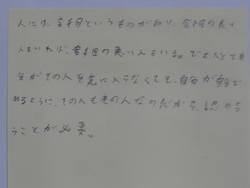 人には、というものがあり、の良い
人もいれば、の悪い人もいる。でもたとえ自
分がその人を気に入らなくても、自分が自分で
あるように、その人もその人なのだから、認め合
うことが必要。